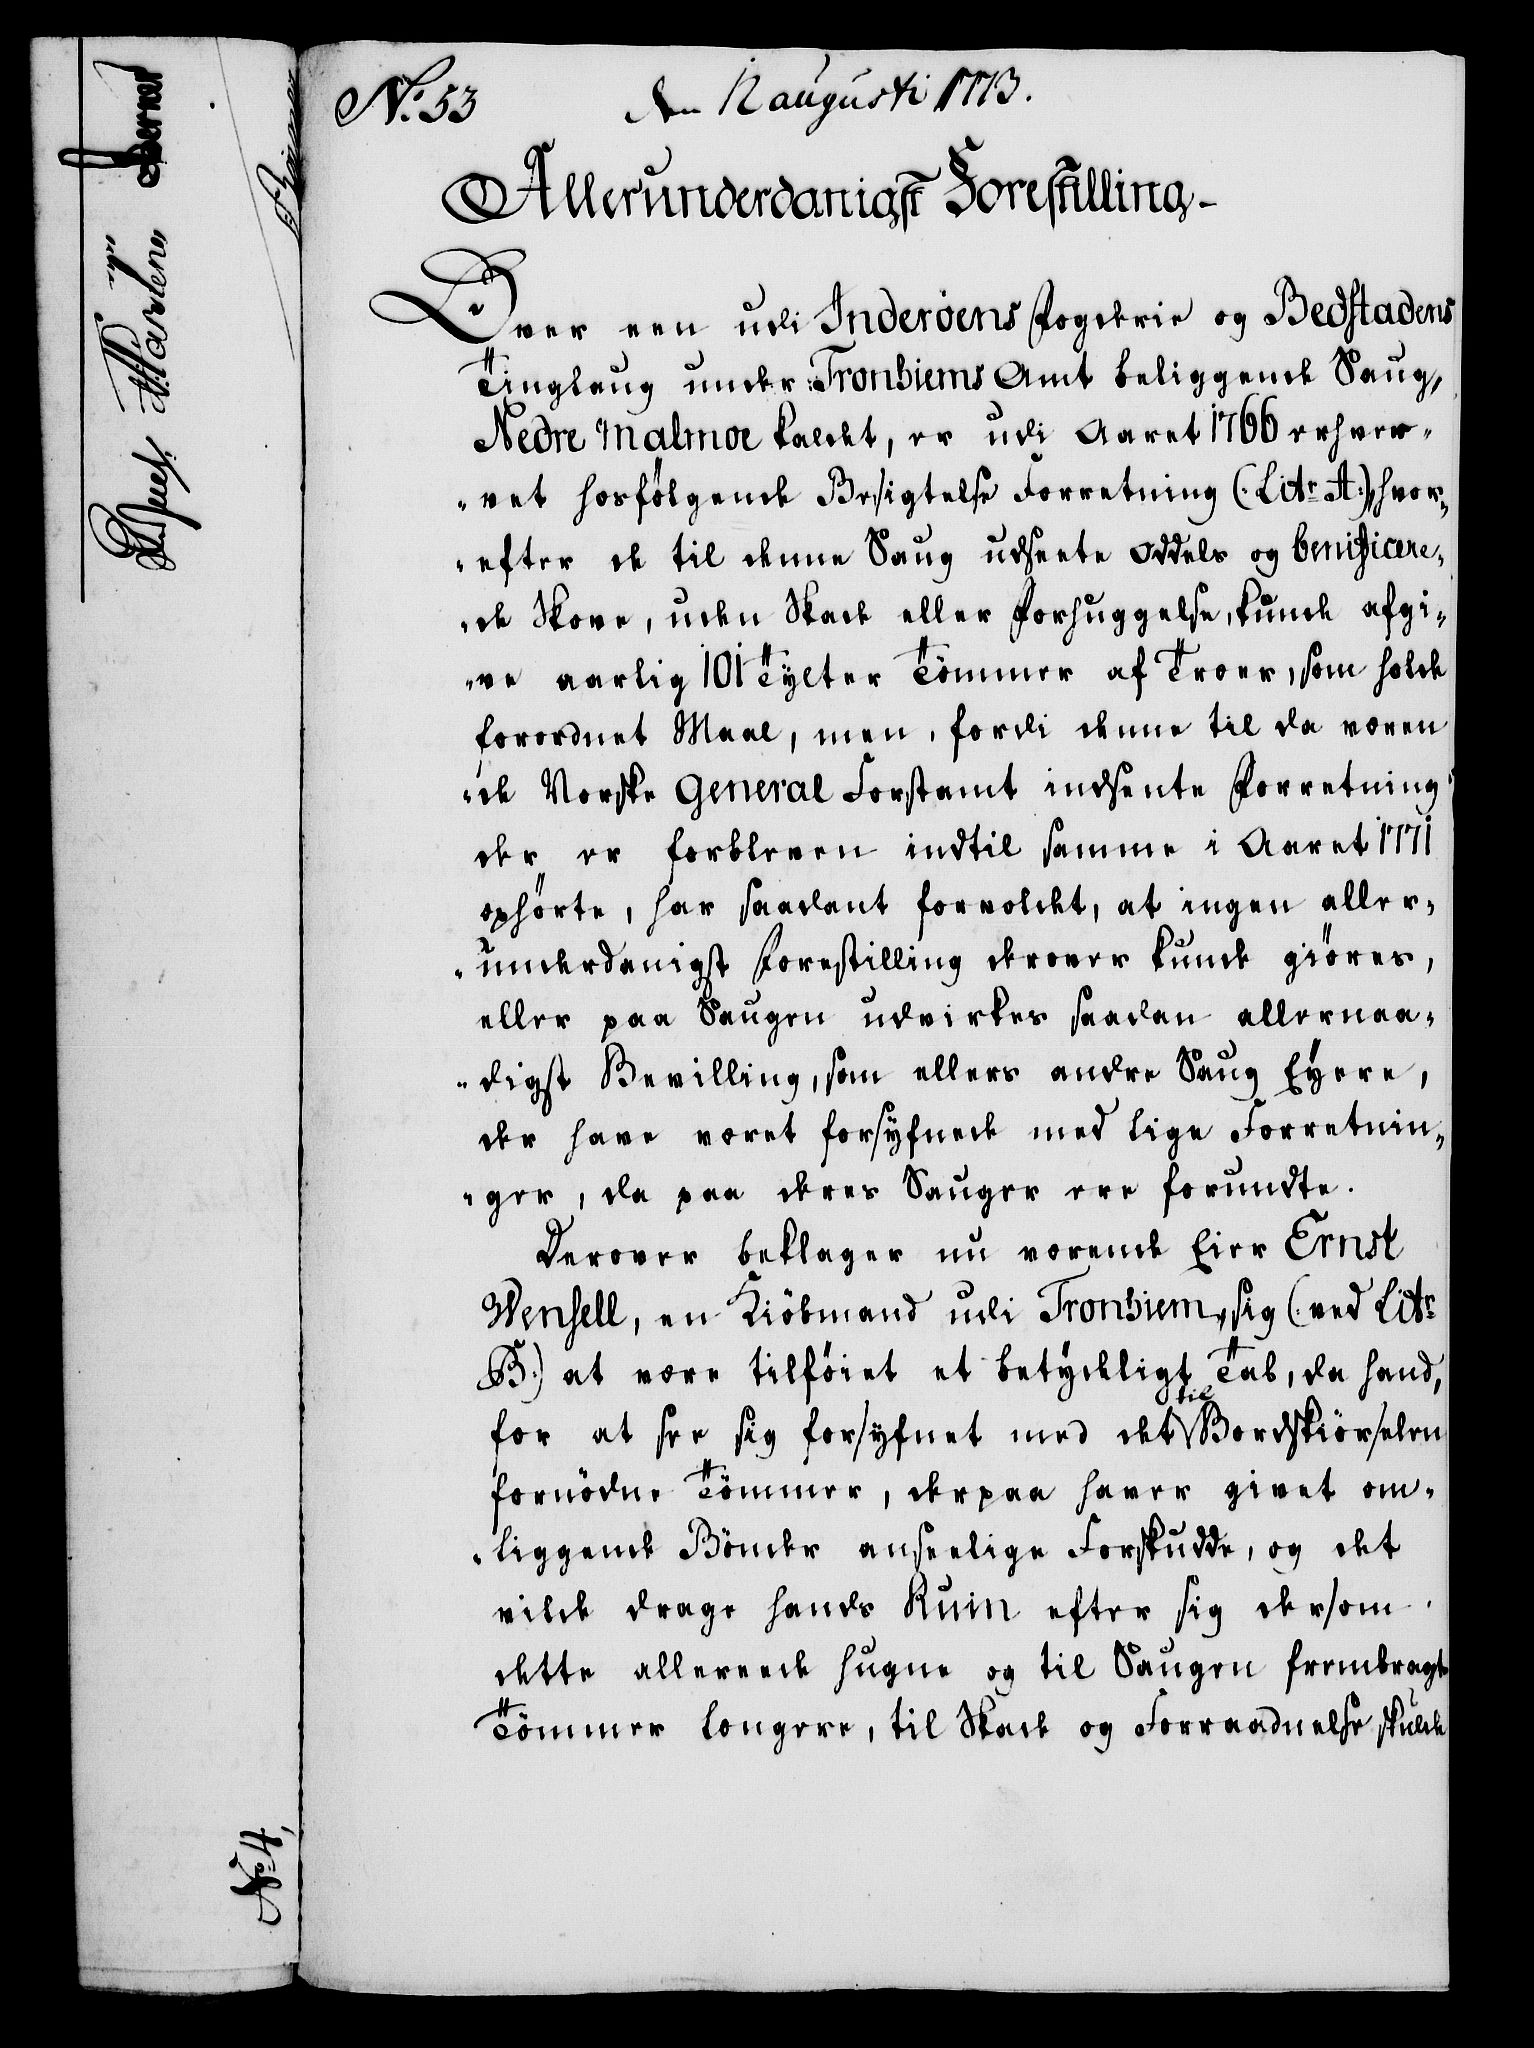 No. 53
den 12 augusti 1773.
Allerunderdanigst Forestilling-
Over een udi Inderöens Fogderie og Bedstadens
Tinglaug under Tronhiems Amt beliggende Saug,
Nedre Malmoe kaldet, er udi Aaret 1766 erhver-
-vet hosfölgende Besigtelse Forretning (: Litr. A:), hvor-
-efter de til denne Saug udseete Oddels og benificere-
-de Skove, uden Skade eller Forhuggelse, kunde afgi-
-ve aarlig 101 Tylter Tömmer af Træer, som holde
forordnet Maal, men, fordi denne til da væren
-de Norske General Forstamt indsente Forretning
der er forbleven indtil samme i Aaret 1771
ophörte, har saadant forvoldet, at ingen aller-
-underdanigst Forestilling derover kunde giöres,
eller paa Saugen udvirkes saadan allernaa-
-digst Bevilling, som ellers andre Saug Eyere,
der have været forsyfnede med lige Forretnin-
-ger, da paa deres Sauger ere forundte.
Derover beklager nu værende Eier Ernst
Wensell, en Kiöbmand udi Tronhiem, sig (: ved Litr.
B:) at være tilföiet et betydeligt Tab, da hand,
for at see sig forsyfnet med det til Bordskiörselen
fornödne Tömmer, derpaa haver givet om-
-liggende Bönder anseelige Forskudde, og det
vilde drage hands Ruin efter sig dersom
dette allereede hugne og til Saugen frembragte
Tömmer længere, til Skade og Forraadnelse skulde
No. 4,